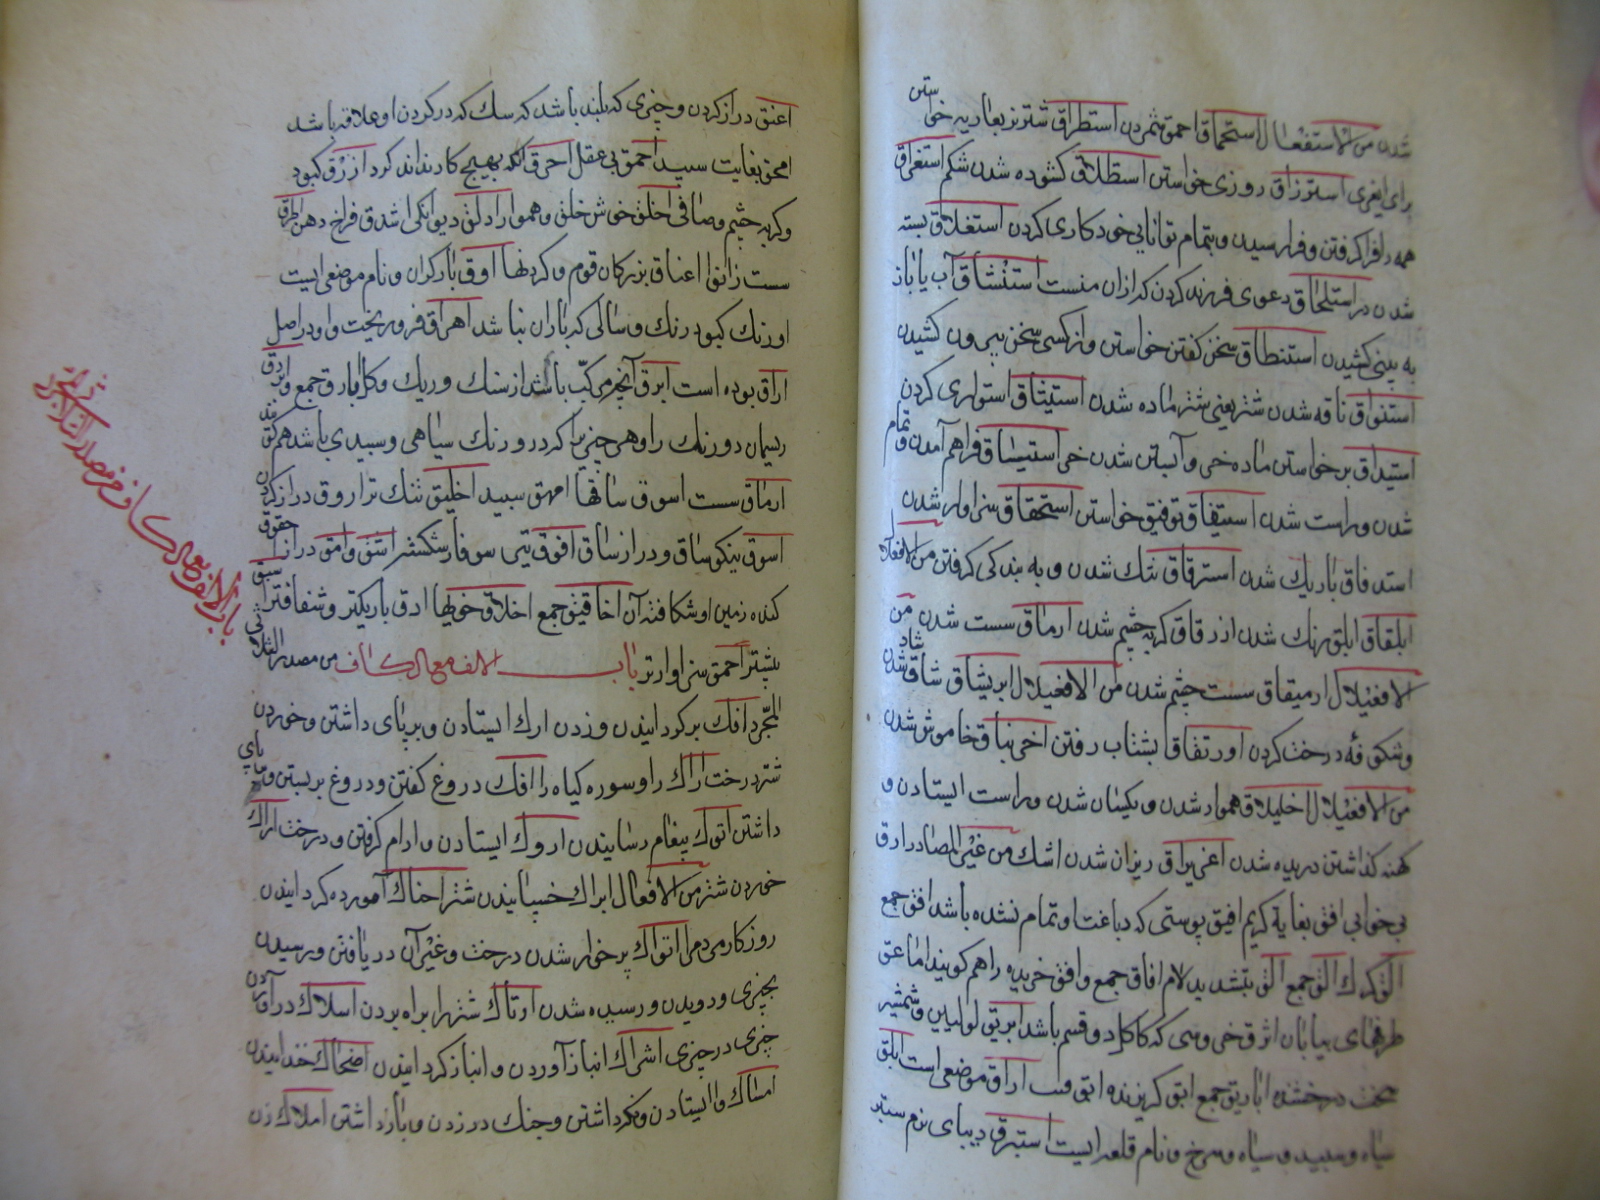 شدن من الاستفعال استحماق احمق شمردن استطراق شتر نر بعاریه خواستن
برای ایغری استرزاق روزی خواستن استطلاق کشوده شدن شکم استغراق
همه را فرا گرفتن و فرا رسیدن و بتمام توانایی خود کاری کردن استغلاق بسته
شدن در استلحاق دعوی فرزند کردن که ازان منست استنشاق آب یا باد
به بینی کشیدن استنطاق سخن کفتن خواستن و از کسی سخن بیرون کشیدن
استنواق ناقه شدن شتر یعنی شتر ماده شدن استیثاق استواری کردن
استیداق بر خواستن ماده خر و آبستن شدن خر استیساق فراهم آمدن و تمام
شدن و راست شدن استیفاق توفیق خواستن استحقاق سزاوار شدن
استدقاق باریک شدن استرقاق تنک شدن و به بندکی کرفتن من الافعلال
ابلقاق ابلق رنک شدن ازرقاق کربه چشم شدن ارماق سست شدن من
الافعیلال ارمیقاق سست چشم شدن من الافعیلال ابریشاق شاد شدن
و شکوفه درخت کردن اورتفاق بشتاب رفتن اخرنباق خاموش شدن
من الافعیلال اخلیلاق هموار شدن و یکسان شدن و راست ایستادن و
کهنه کذاشتن دریده شدن اغریراق ریزان شدن اشک من غیر المصادر ارق
بی خوابی افق بغایة کریم افیق پوستی که دباغت او تمام نشده باشد افق جمع
الق کرک الق جمع الق بتشدید لام افاق جمع و افق خریده را هم کویند اماعق
طرفهای بیابان ازرق خر وسی که کاکل دو قسم باشد ابریق لولیین و شمشیر
سخت درخشنده اباریق جمع ابق کریزنده ابق قنب اراق موضعی است ابلق
سیاه و سپید و سیاه و سرخ و نام قلعه ایست استبرق دیبای نرم ستبر
اعنق دراز کردن و چیزی که بلند باشد که سک که در کردن او علاقه باشد
امحق بغایت سپید احمق بی عقل احرق انکه بهیچ کار نداند کرد ازرق کبود
و کربه چشم و صافی اخلق خوش خلق و هموار ادلق دیوانکی اشدق فراخ دهن اطرق
سست زانو اعناق بزرکان قوم و کردنها اوق بار کران و نام موضعی ایست
اورنک کبود رنک و سالی که باران نباشد اهراق فرو ریخت و او در اصل
اراق بوده است ابرق آنچه مرکب باشد از سنک و ریک و کل ابارق جمع و ابرق
ریسمان دو رنک را و هر چیزی را که در و رنک سیاهی و سپیدی باشد هم کویند
ارماق سست اسوق ساقها امهق سپید اخلیق تنک تر اروق دراز کردن
اسوق نیکو ساق و دراز ساق افوق تیر سوفار شکسته اشق و امق دراز حقوق
کنده زمین او شکافته آن اخاقیق جمع اخلاق خویها ادق باریکتر و شفافتر اسبق
بیشتر احمق سزاوارتر باب الالف مع الکاف من مصدر الثلاثی
المجرد افک برکردانیدن و زدن ارک ایستادن و برپای داشتن و خوردن
شتر درخت اراک را و سوره کیاه را افک دروغ کفتن و دروغ بر بستن و برپای
داشتن اتوک پیغام رسانیدن اروک ایستادن و ارام کرفتن و درخت اراک
خوردن شتر من الافعال ابراک خسپانیدن شتر احناک آموزده کردانیدن
روزکار مردم را اتواک پرخوار شدن درخت و غیر آن دریافتن و رسیدن
بچیزی و دویدن و رسیده شدن ارتاک شتر را براه بردن اسلاک در آوردن
چیزی در چیزی اشراک انباز آوردن و انباز کردانیدن اضحاک خندانیدن
امساک وا ایستادن و نکه داشتن و چنک در زدن و باز داشتن املاک زن
باب الالف مع الکاف من مصدر الثلاثی المجرد